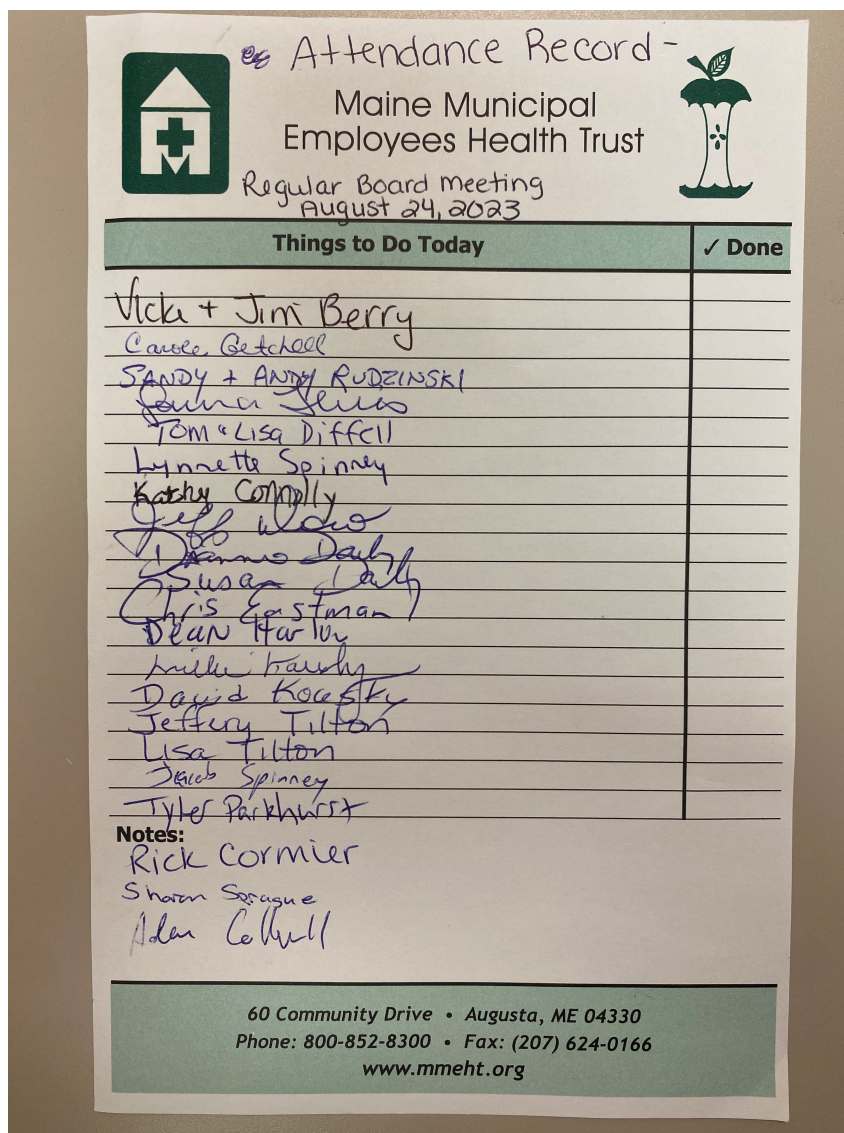 Attendance Record -
Maine Municipal
Employees Health Trust
Regular Board meeting
August 24, 2023
Things to Do Today
✓ Done
Vicki + Jim Berry
Carole Getchell
SANDY + ANDY RUDZINSKI
Tom & Lisa Diffell
Lynnette Spinney
Kathy Connolly
Jeff
Daily
Susan Daily
Chris Eastman
Dean Harlow
David
Jeffery Tilton
Lisa Tilton
Jacob Spinney
Tyler Parkhurst
Notes:
Rick Cormier
Sharon Sprague
60 Community Drive • Augusta, ME 04330
Phone: 800-852-8300 • Fax: (207) 624-0166
www.mmeht.org